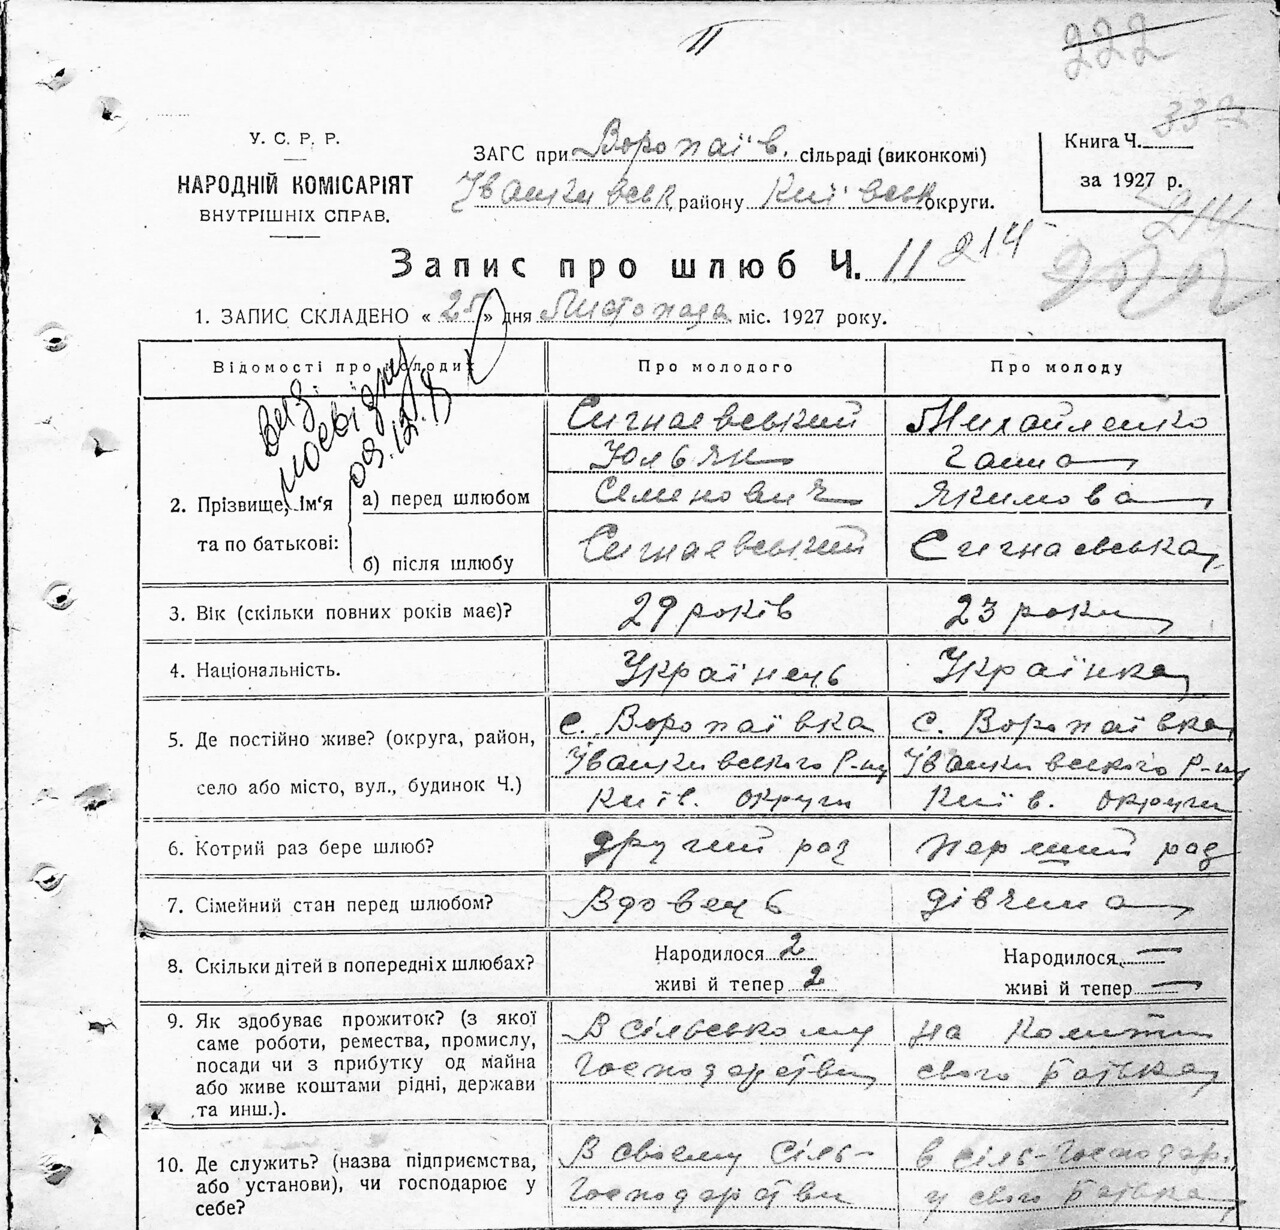 11
222
У. С. Р. Р.
НАРОДНІЙ КОМІСАРІЯТ
ВНУТРІШНІХ СПРАВ.
ЗАГС при Воропаїв. сільраді (виконкомі)
Іванкивськ району Київськ округи.
Книга Ч.
за 1927 р.
214
Запис про шлюб Ч. 11 214
1. ЗАПИС СКЛАДЕНО « 25 » дня Листопада міс. 1927 року.
Відомості про молодих
Про молодого
Про молоду
вид.
посвідку
09.12.
2. Прізвище, ім'я
та по батькові:
а) перед шлюбом
б) після шлюбу
Сигнаевський
Юльян
Семенович
Сигнаевський
Михайленко
Ганна
Якимова
Сигнаевська
3. Вік (скільки повних років має)?
29 років
23 роки
4. Національність.
Українець
Українка
5. Де постійно живе? (округа, район,
село або місто, вул., будинок Ч.)
с. Воропаївка
Іванкивського Р-ну
Київ. округи
с. Воропаївка
Іванкивського Р-ну
Київ. округи
6. Котрий раз бере шлюб?
другий раз
перший раз
7. Сімейний стан перед шлюбом?
Вдовець
дівчина
8. Скільки дітей в попередніх шлюбах?
Народилося 2
живі й тепер 2
Народилося —
живі й тепер —
9. Як здобуває прожиток? (з якої
саме роботи, ремества, промислу,
посади чи з прибутку од майна
або живе коштами рідні, держави
та инш.).
В сільському
Господарстви
на кошти
свого батька
10. Де служить? (назва підприємства,
або установи), чи господарює у
себе?
В своему Сіль-
Господарстви
в сіль-Господар.
у свого батька